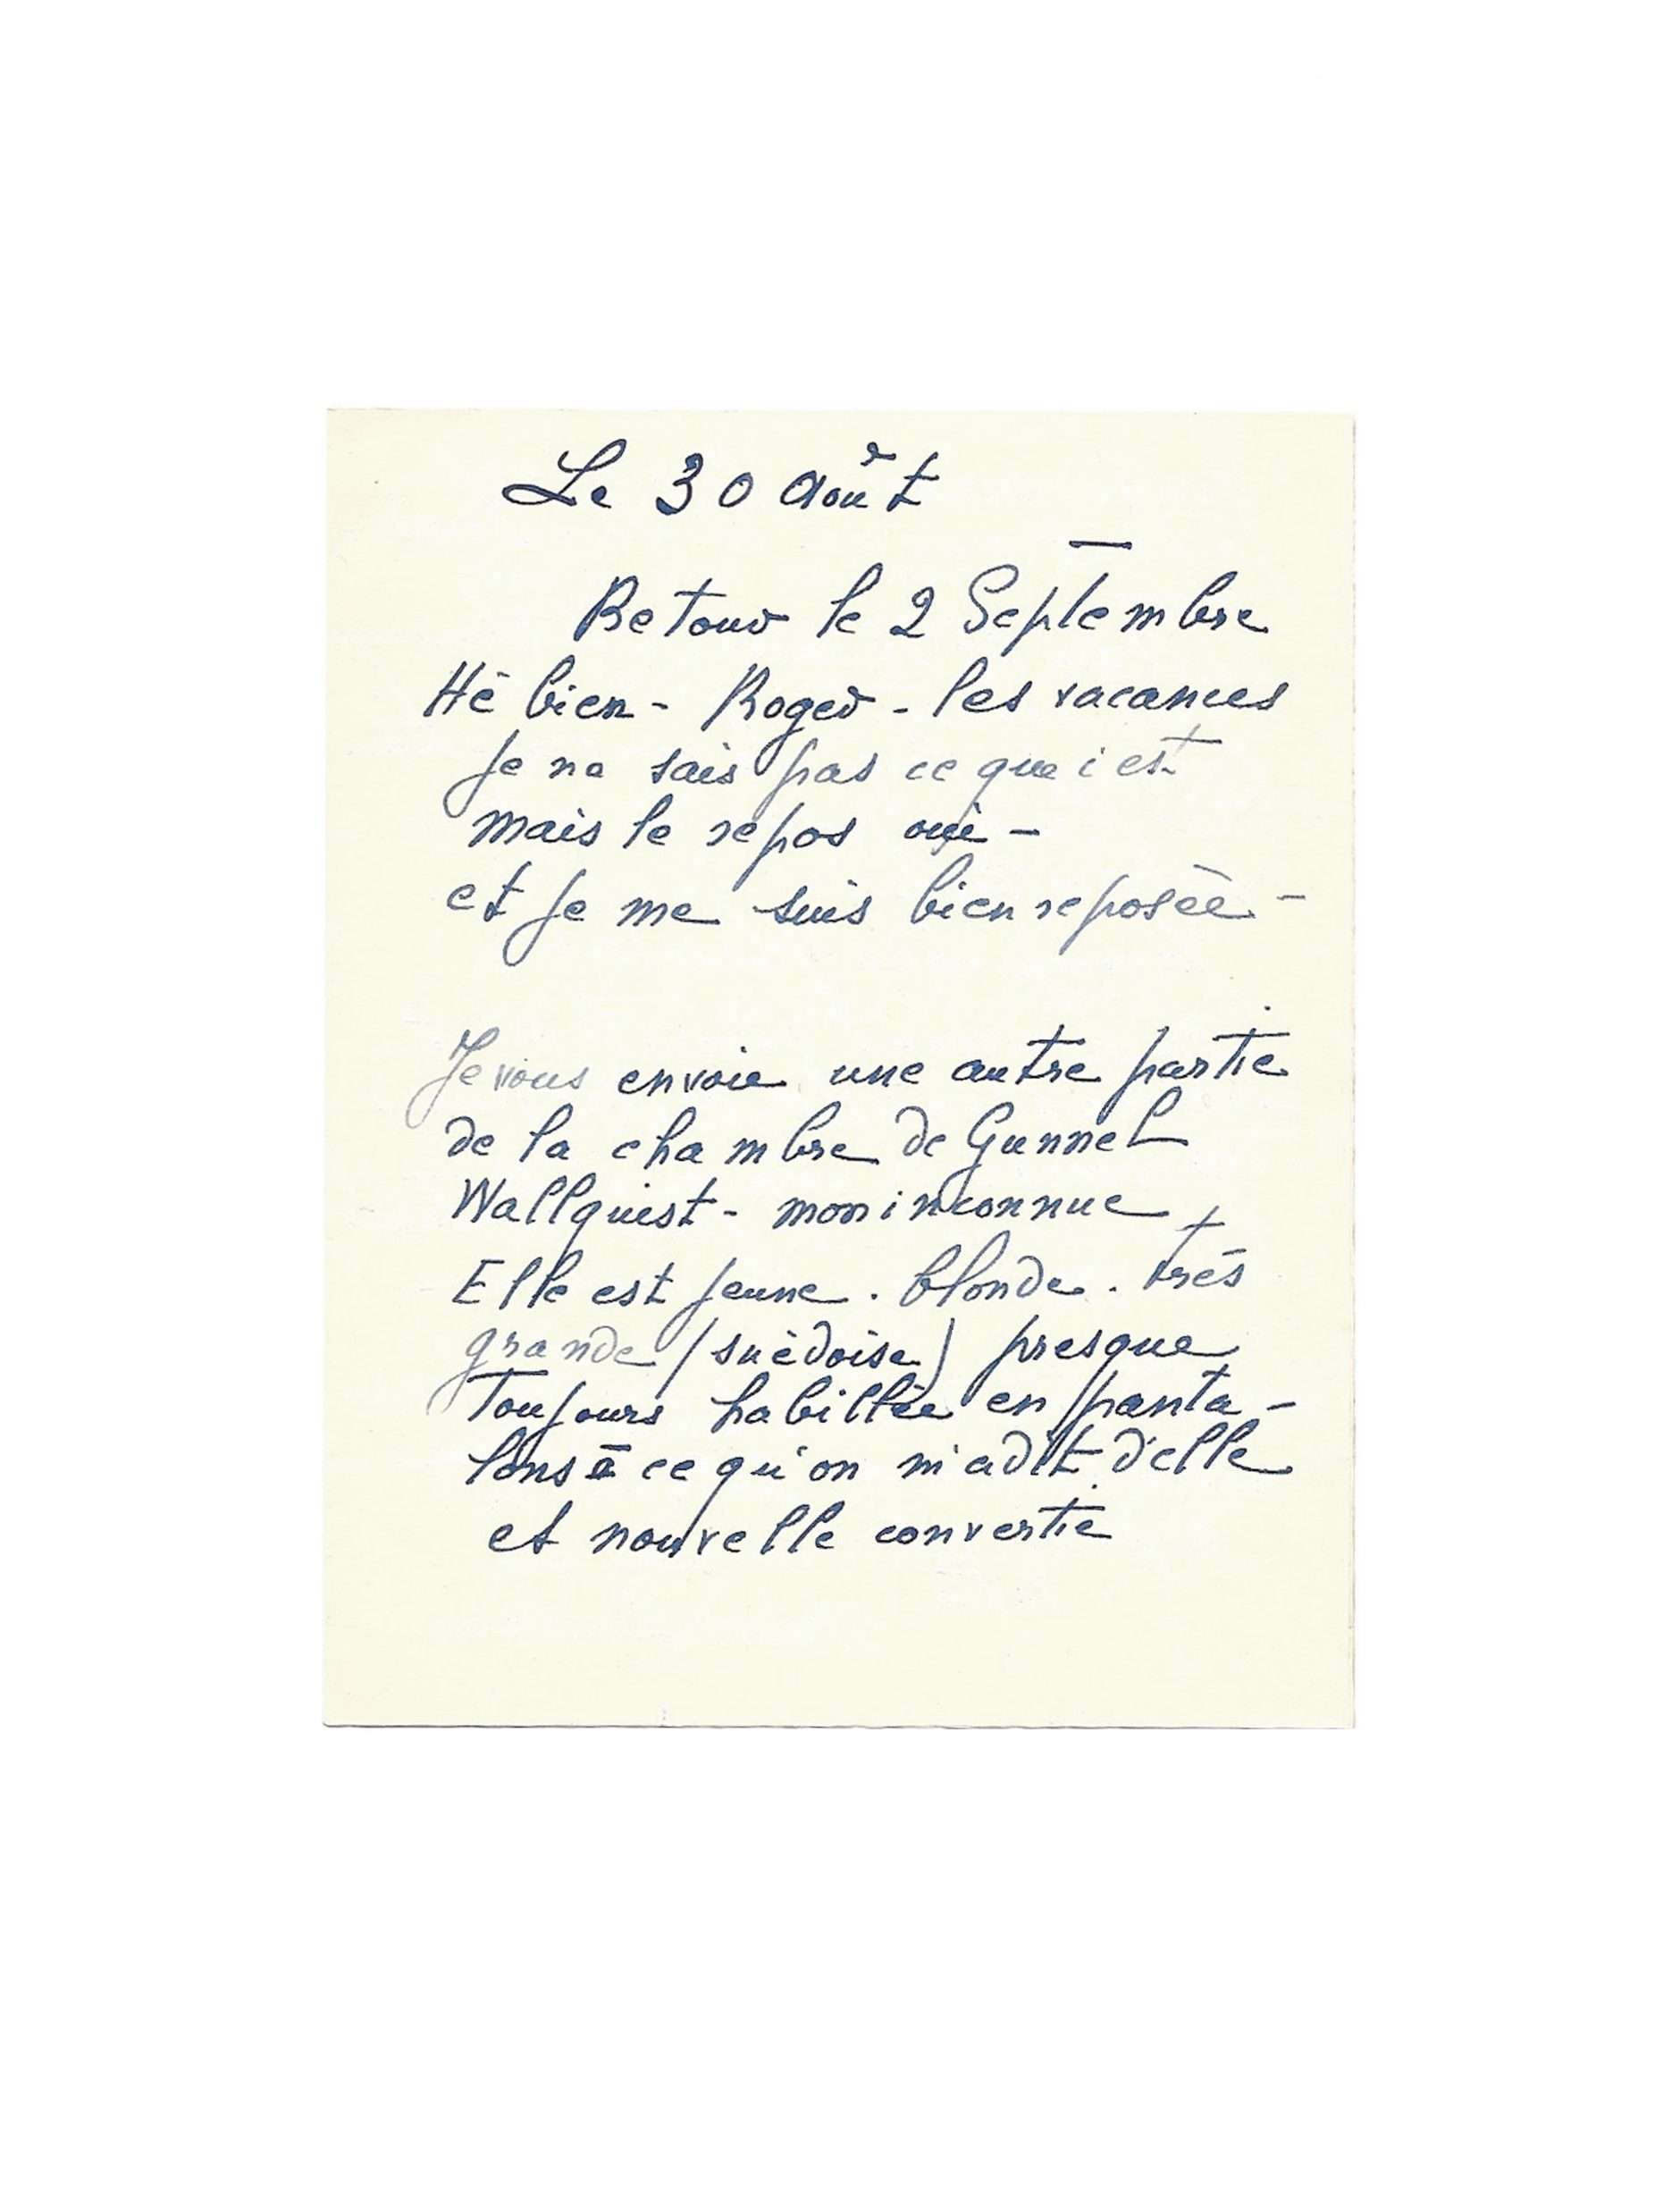 Le 30 Août
Retour le 2 Septembre
Hé bien - Roger - les vacances
je ne sais pas ce que c'est
mais le repos oui -
et je me suis bien reposée -
Je vous envoie une autre partie
de la chambre de Gunnel
Wallquist - mon inconnue
Elle est jeune. blonde. très
grande (suèdoise) presque
toujours habillée en panta -
lons à ce qu'on m'a dit d'elle
et nouvelle convertie